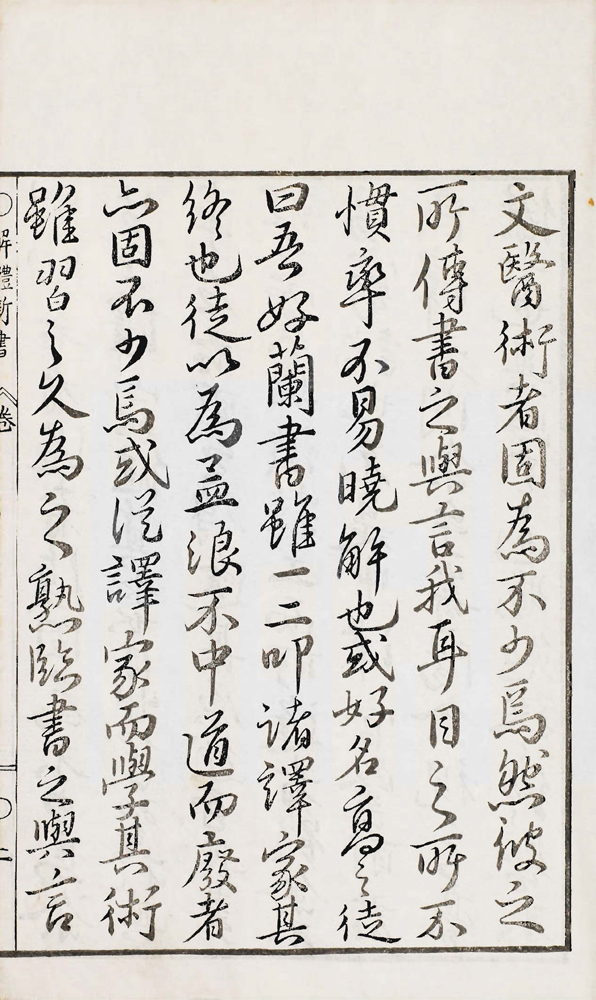 文醫術者固為不少焉然彼之
所傳書之與言我耳目之所不
慣率不易曉解也或好名高之徒
曰吾好蘭書雖一二叩諸譯家其
終也徒以為孟浪不中道而廢者
亦固不少焉或從譯家而學其術
雖習之久為之熟臨書之與言
〇解體新書 卷 〇二